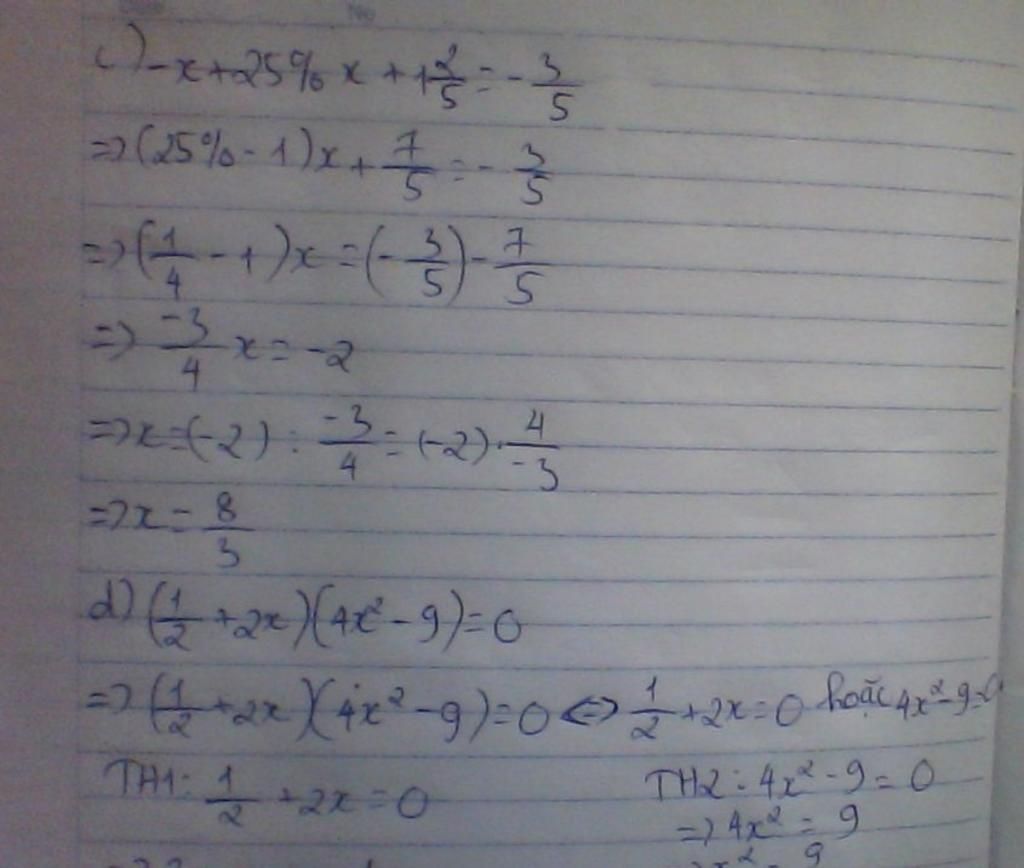 c) -x + 25% x + 1 2/5 = - 3/5
=> (25% - 1)x + 7/5 = - 3/5
=> (1/4 - 1)x = (- 3/5) - 7/5
=> -3/4 x = -2
=> x = (-2) : -3/4 = (-2) . 4/-3
=> x = 8/3
d) (1/2 + 2x)(4x² - 9) = 0
=> (1/2 + 2x)(4x² - 9) = 0 <=> 1/2 + 2x = 0 hoặc 4x² - 9 = 0
TH1: 1/2 + 2x = 0
TH2: 4x² - 9 = 0
=> 4x² = 9